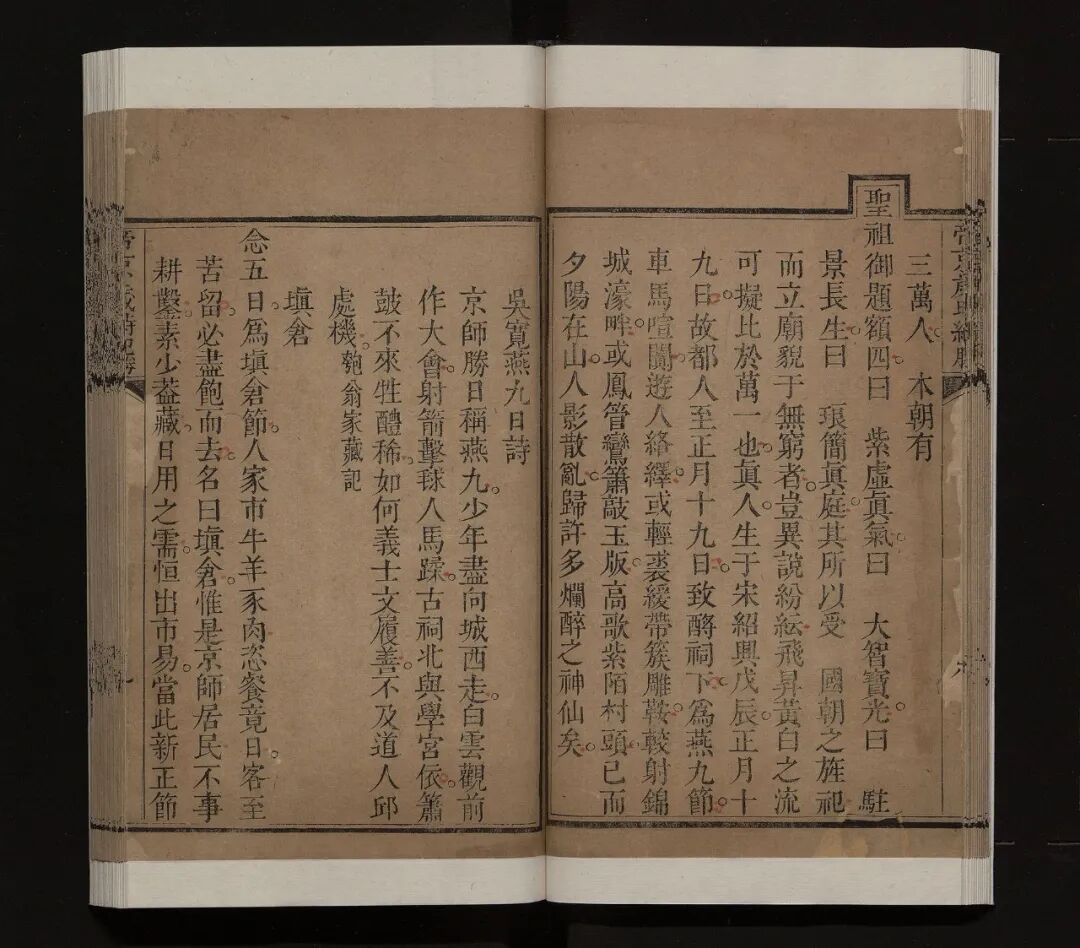 三萬人。 本朝有
聖祖御題額四曰 紫虛真氣曰 大智寶光曰 駐
景長生曰 琅簡真庭其所以受 國朝之旌祀
而立廟貌于無窮者豈異說紛紜飛昇黃白之流
可擬比於萬一也真人生于宋紹興戊辰正月十
九日故都人至正月十九日致酧祠下為燕九節
車馬喧闐遊人絡繹或輕裘緩帶簇雕鞍較射錦
城濠畔或鳳管鸞簫敲玉版高歌紫陌村頭已而
夕陽在山人影散亂歸許多爛醉之神仙矣
吳寬燕九日詩
京師勝日稱燕九少年盡向城西走白雲觀前
作大會射箭擊毬人馬蹂古祠北與學宮依簫
鼓不來牲醴稀如何義士文履善不及道人邱
處機 匏翁家藏記
填倉
念五日為填倉節人家市牛羊豕肉恣餐竟日客至
苦留必盡飽而去名曰填倉惟是京師居民不事
耕鑿素少葢藏日用之需恒出市易當此新正節